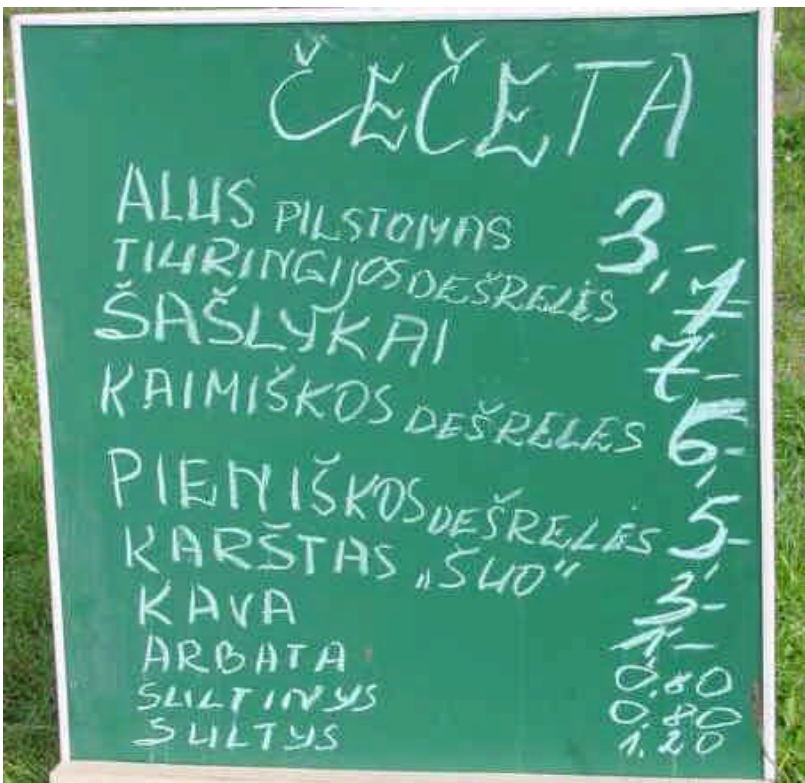 ČEČETA
ALUS PILSTOMAS 3,-
TIURINGIJOS DEŠRELĖS 7-
ŠAŠLYKAI 7,-
KAIMIŠKOS DEŠRELĖS 6,-
PIENIŠKOS DEŠRELĖS 5,-
KARŠTAS „ŠUO" 3-
KAVA 1-
ARBATA 0,80
SULTINYS 0,80
SULTYS 1,20